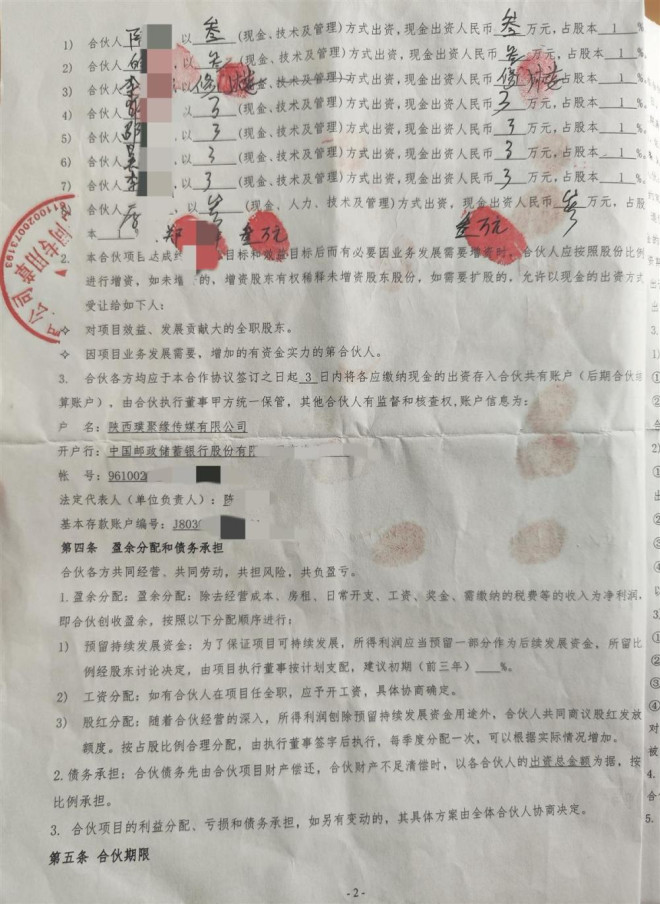 1) 合伙人 ,以 叁 (现金、技术及管理)方式出资,现金出资人民币 叁 万元,占股本 1 %
2) 合伙人 ,以 (现金、技术及管理)方式出资,现金出资人民币 万元,占股本 1 %
3) 合伙人李 ,以 (现金、技术及管理)方式出资,现金出资人民币 万元,占股本 1 %
4) 合伙人 ,以 3 (现金、技术及管理)方式出资,现金出资人民币 3 万元,占股本 1 %
5) 合伙人 ,以 3 (现金、技术及管理)方式出资,现金出资人民币 3 万元,占股本 1 %
6) 合伙人 ,以 3 (现金、技术及管理)方式出资,现金出资人民币 3 万元,占股本 1 %
7) 合伙人李 ,以 3 (现金、技术及管理)方式出资,现金出资人民币 3 万元,占股本 1 %
,以 叁 (现金、人力、技术及管理)方式出资,现金出资人民币 叁 万元,占股
本 1 郑 叁万元 叁万元
6110020073193
公司 合同专用章
2. 本合伙项目达成 目标和效益目标后而有必要因业务发展需要增资时,合伙人应按照股份比例
进行增资,如未增 的,增资股东有权稀释未增资股东股份,如需要扩股的,允许以现金的出资方式
受让给如下人:
❖ 对项目效益、发展贡献大的全职股东。
❖ 因项目业务发展需要,增加的有资金实力的第合伙人。
3. 合伙各方均应于本合作协议签订之日起 3 日内将各应缴纳现金的出资存入合伙共有账户(后期合伙结
算账户),由合伙执行董事甲方统一保管,其他合伙人有监督和核查权,账户信息为:
户 名:陕西璞聚缘传媒有限公司
开户行:中国邮政储蓄银行股份有
帐 号:961002
法定代表人(单位负责人):陈
基本存款账户编号:J803
第四条 盈余分配和债务承担
合伙各方共同经营、共同劳动,共担风险,共负盈亏。
1.盈余分配:盈余分配:除去经营成本、房租、日常开支、工资、奖金、需缴纳的税费等的收入为净利润,
即合伙创收盈余,按照以下分配顺序进行:
1) 预留持续发展资金:为了保证项目可持续发展,所得利润应当预留一部分作为后续发展资金,所留比
例经股东讨论决定,由项目执行董事按计划支配,建议初期(前三年)____%。
2) 工资分配:如有合伙人在项目任全职,应予开工资,具体协商确定。
3) 股红分配:随着合伙经营的深入,所得利润刨除预留持续发展资金用途外,合伙人共同商议股红发放
额度。按占股比例合理分配,由执行董事签字后执行,每季度分配一次,可以根据实际情况增加。
2.债务承担:合伙债务先由合伙项目财产偿还,合伙财产不足清偿时,以各合伙人的出资总金额为据,按
比例承担。
3. 合伙项目的利益分配、亏损和债务承担,如另有变动的,其具体方案由全体合伙人协商决定。
第五条 合伙期限
- 2 -